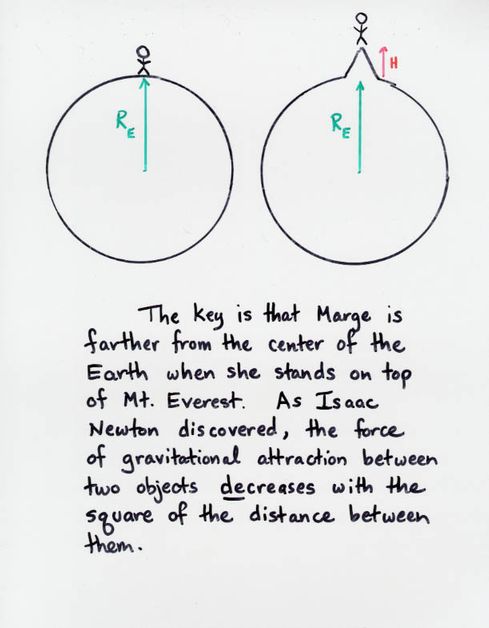 R_E
R_E
H
The key is that Marge is
farther from the center of the
Earth when she stands on top
of Mt. Everest. As Isaac
Newton discovered, the force
of gravitational attraction between
two objects decreases with the
square of the distance between
them.